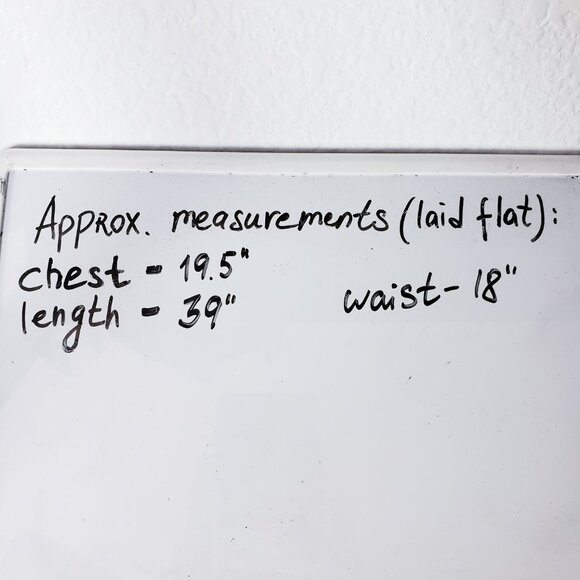 Approx. measurements (laid flat):
chest - 19.5"
length - 39"
waist - 18"